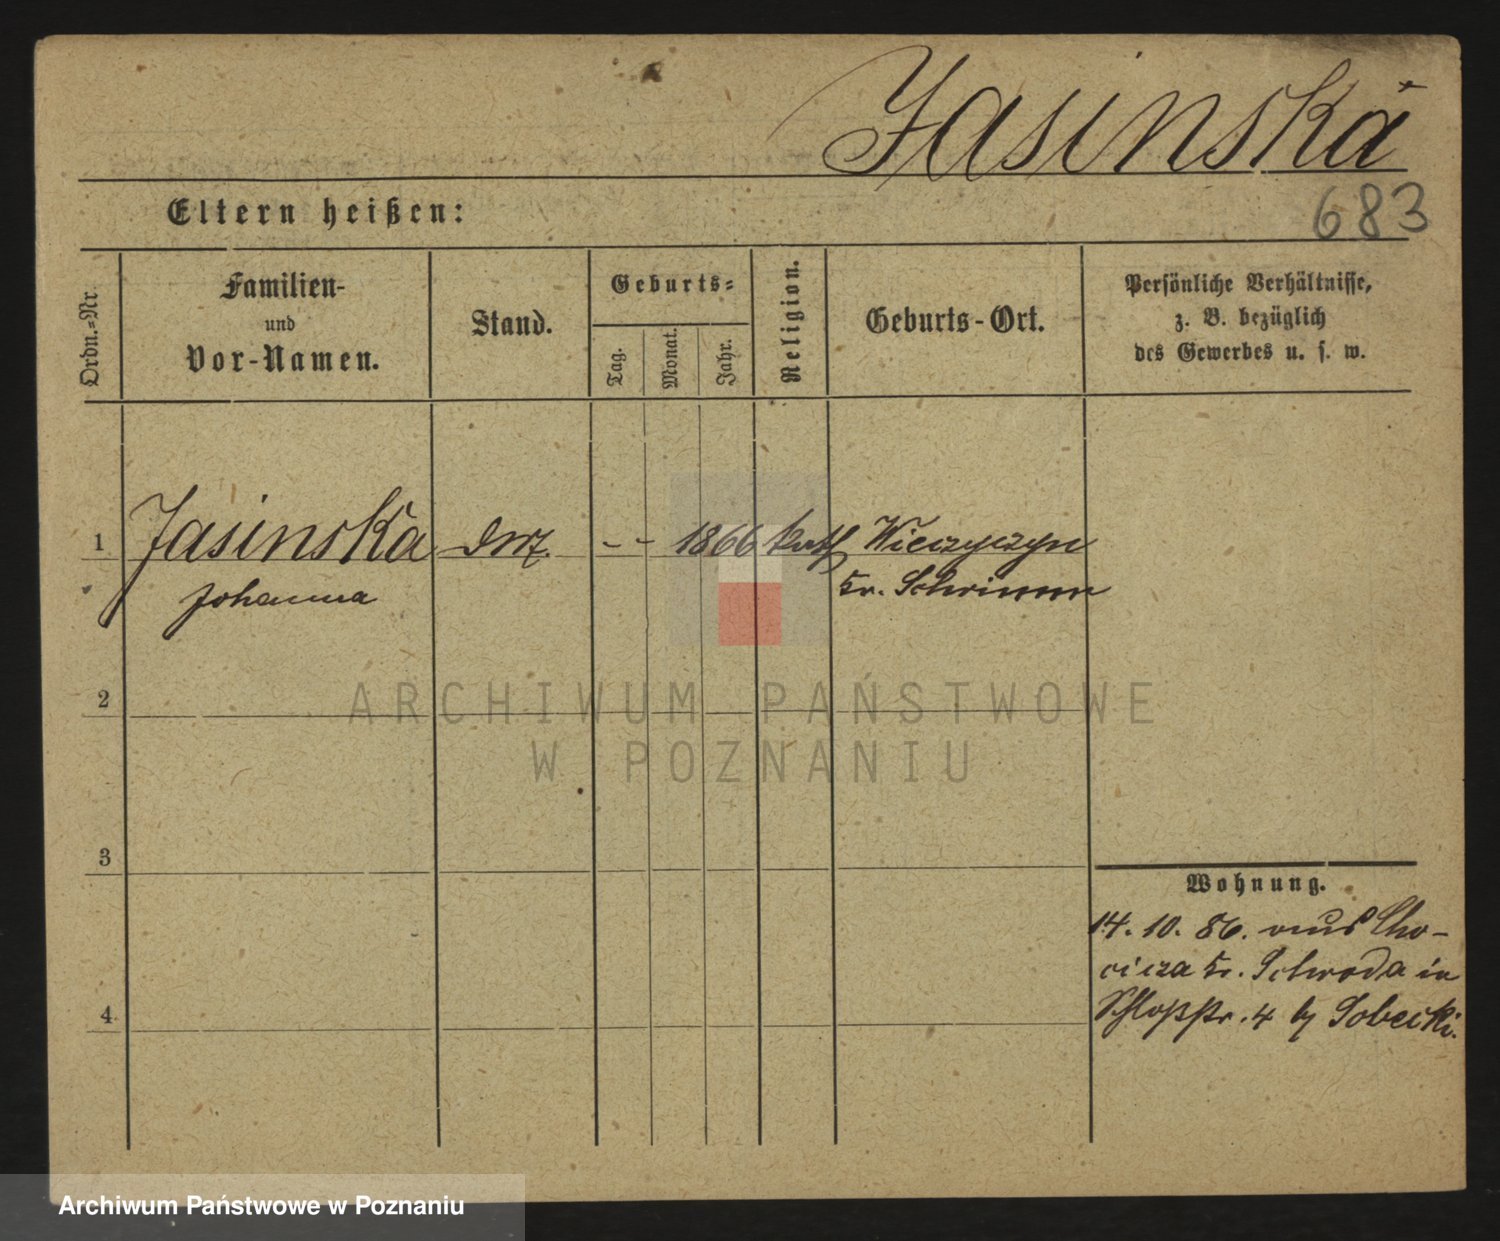 Jasinska
Eltern heißen:
683
Ordn.-Nr.
Familien-
und
Vor-Namen.
Stand.
Geburts-
Tag.
Monat.
Jahr.
Religion.
Geburts-Ort.
Persönliche Verhältnisse,
z. B. bezüglich
des Gewerbes u. s. w.
1 Jasinska - - 1866 kath Wieczyczyn
Johanna Kr. Schrimm
2
ARCHIWUM PAŃSTWOWE
W POZNANIU
3
Wohnung.
14. 10. 86. aus
Kr. Schroda in
4
Schloßstr. 4 by Sobecki.
Archiwum Państwowe w Poznaniu